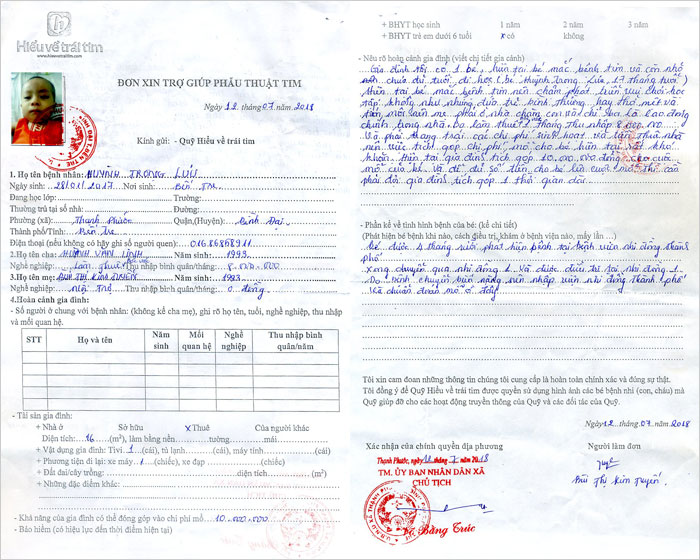 Hiểu về trái tim
www.hieuvetraitim.com
ĐƠN XIN TRỢ GIÚP PHẪU THUẬT TIM
Ngày 12 tháng 07 năm 2018
Kính gửi: - Quỹ Hiểu về trái tim
1. Họ tên bệnh nhân: HUỲNH TRỌNG LỰU
Ngày sinh: 28/01/2017 Nơi sinh: Bến Tre
Đang học lớp: Trường:
Thường trú tại số nhà: Đường:
Phường (xã): Thạnh Phước Quận,(Huyện): Bình Đại
Thành phố/Tỉnh: Bến Tre
Điện thoại (nếu không có hãy ghi số người quen): 01686868911
2.Họ tên cha: HUỲNH VĂN LĨNH Năm sinh: 1993
Nghề nghiệp: Làm thuê Thu nhập bình quân/tháng: 8.000.000
3.Họ tên mẹ: BÙI THỊ KIM TUYỀN Năm sinh: 1993
Nghề nghiệp: Nội Trợ Thu nhập bình quân/tháng: 0 đồng
4.Hoàn cảnh gia đình:
- Số người ở chung với bệnh nhân: (không kể cha mẹ), ghi rõ họ tên, tuổi, nghề nghiệp, thu nhập
và mối quan hệ.
STT Họ và tên Năm sinh Mối quan hệ Nghề nghiệp Thu nhập bình quân/năm
- Tài sản gia đình:
+ Nhà ở Sở hữu x Thuê Của người khác
Diện tích: 16 (m²), làm bằng nền tường mái
+ Vật dụng gia đình: Tivi 1 (cái), tủ lạnh (cái), máy tính (cái)
+ Phương tiện đi lại: xe máy 1 (chiếc), xe đạp (chiếc)
+ Đất đai/cây trồng: diện tích (m²)
+ Những đặc điểm khác:
- Khả năng của gia đình có thể đóng góp vào chi phí mổ 10.000.000
- Bảo hiểm (có hiệu lực đến thời điểm hiện tại)
+ BHYT học sinh 1 năm 2 năm 3 năm
+ BHYT trẻ em dưới 6 tuổi x có không
- Nêu rõ hoàn cảnh gia đình (viết chi tiết gia cảnh)
Gia đình tôi có 1 bé, hiện tại bé mắc bệnh tim và còn nhỏ
nên chưa đủ tuổi đi học (bé Huỳnh Trọng Lựu 17 tháng tuổi)
hiện tại bé mắc bệnh tim nên chậm phát triển vui chơi học
tập không như những đứa trẻ bình thường hay thở mệt và
tím môi nên mẹ phải ở nhà chăm con và chỉ ba là lao động
chính trong nhà. Ba làm thuê 1 tháng thu nhập 8.000.000
Và phải trang trải các chi phí sinh hoạt và tiền thuê nhà
nên việc tích góp chi phí mổ cho bé hiện tại rất khó
khăn. Hiện tại gia đình tích góp 10.000.000 đồng cho cuộc
mổ của bé và để đủ số tiền cho bé cuộc mổ thì cần
phải đợi gia đình tích góp 1 thời gian dài
- Phần kể về tình hình bệnh của bé: (kể chi tiết)
(Phát hiện bé bệnh khi nào, cách điều trị, khám ở bệnh viện nào, mấy lần ...)
Bé được 4 tháng tuổi phát hiện bệnh tại bệnh viện nhi đồng thành
phố
Xong chuyển qua nhi đồng 1. Và được điều trị tại nhi đồng 1.
Do bệnh chuyển biến nặng nên nhập viện nhi đồng thành phố
Và chuẩn đoán mổ ở đây
Tôi xin cam đoan những thông tin chúng tôi cung cấp là hoàn toàn chính xác và đúng sự thật.
Tôi đồng ý để Quỹ Hiểu về trái tim được quyền sử dụng hình ảnh các bé bệnh nhi (con, cháu) mà
Quỹ giúp đỡ cho các hoạt động truyền thông của Quỹ và các đối tác của Quỹ.
Ngày 12 tháng 07 năm 2018
Xác nhận của chính quyền địa phương Người làm đơn
Thạnh Phước, ngày 12 tháng 7 năm 2018
TM. ỦY BAN NHÂN DÂN XÃ
CHỦ TỊCH
Bùi Thị Kim Tuyền
Võ Bằng Trúc